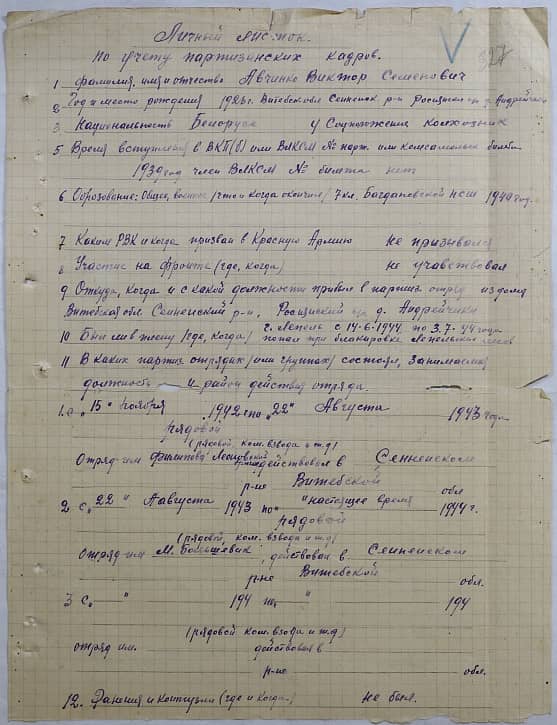 Личный листок.
по учету партизанских кадров.
1 Фамилия, имя и отчество Авчинко Виктор Семенович
2 Год и место рождения 1923г. Витебская Сенненск р-н Росиянский д. Андрейчики
3 Национальность Белорус 4 Соцположения Колхозник
5 Время вступления в ВКП(б) или ВЛКСМ № парт. или комсомольск билета
1939 год член ВЛКСМ № билета нет
6 Образование: Общее, военное /что и когда окончил/ 7 кл. Богдановской НСШ 1940 год.
7 Каким РВК и когда призван в Красную Армию не призывался
8 Участие на фронте (где, когда) не учавствовал
9 Откуда, когда и с какой должности прибыл в партиз отряд из дома
Витебская обл. Сенненский р-н, Росиянский д. Андрейчики
10 Был ли в плену (где, когда) г. Лепель с 14-6-1944 по 3.7-44 года
попал при блакировке Лепельских лесов
11 В каких партиз отрядах (или группах) состоял, занимаемая
должность и район действия отряда.
1. с „15" Ноября 1942 г по „22" Августа 1943 года
рядовой
(рядовой, ком. взвода и т.д)
Отряд им Филипова действовал в Сенненском
р-не Витебской обл
2 с „22" Августа 1943 по " настоящее время 1944 г.
рядовой
(рядовой, ком. взвода и т.д)
Отряд им М. Большевик, действовал в Сенненском
р-не Витебской обл.
3 с „ " 194 по " 194
(рядовой ком. взвода и т.д)
отряд им. действовал в
р-не обл.
12. Ранения и контузии (где и когда.) не был.